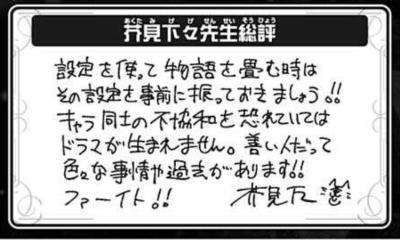 あくたみげげせんせいそうひょう
芥見下々先生総評
設定を使って物語を畳む時は
その設定を事前に振っておきましょう!!
キャラ同士の不協和を恐れていては
ドラマが生まれません。善い人だって
色々な事情や過去があります!!
ファイト!! 芥見下々